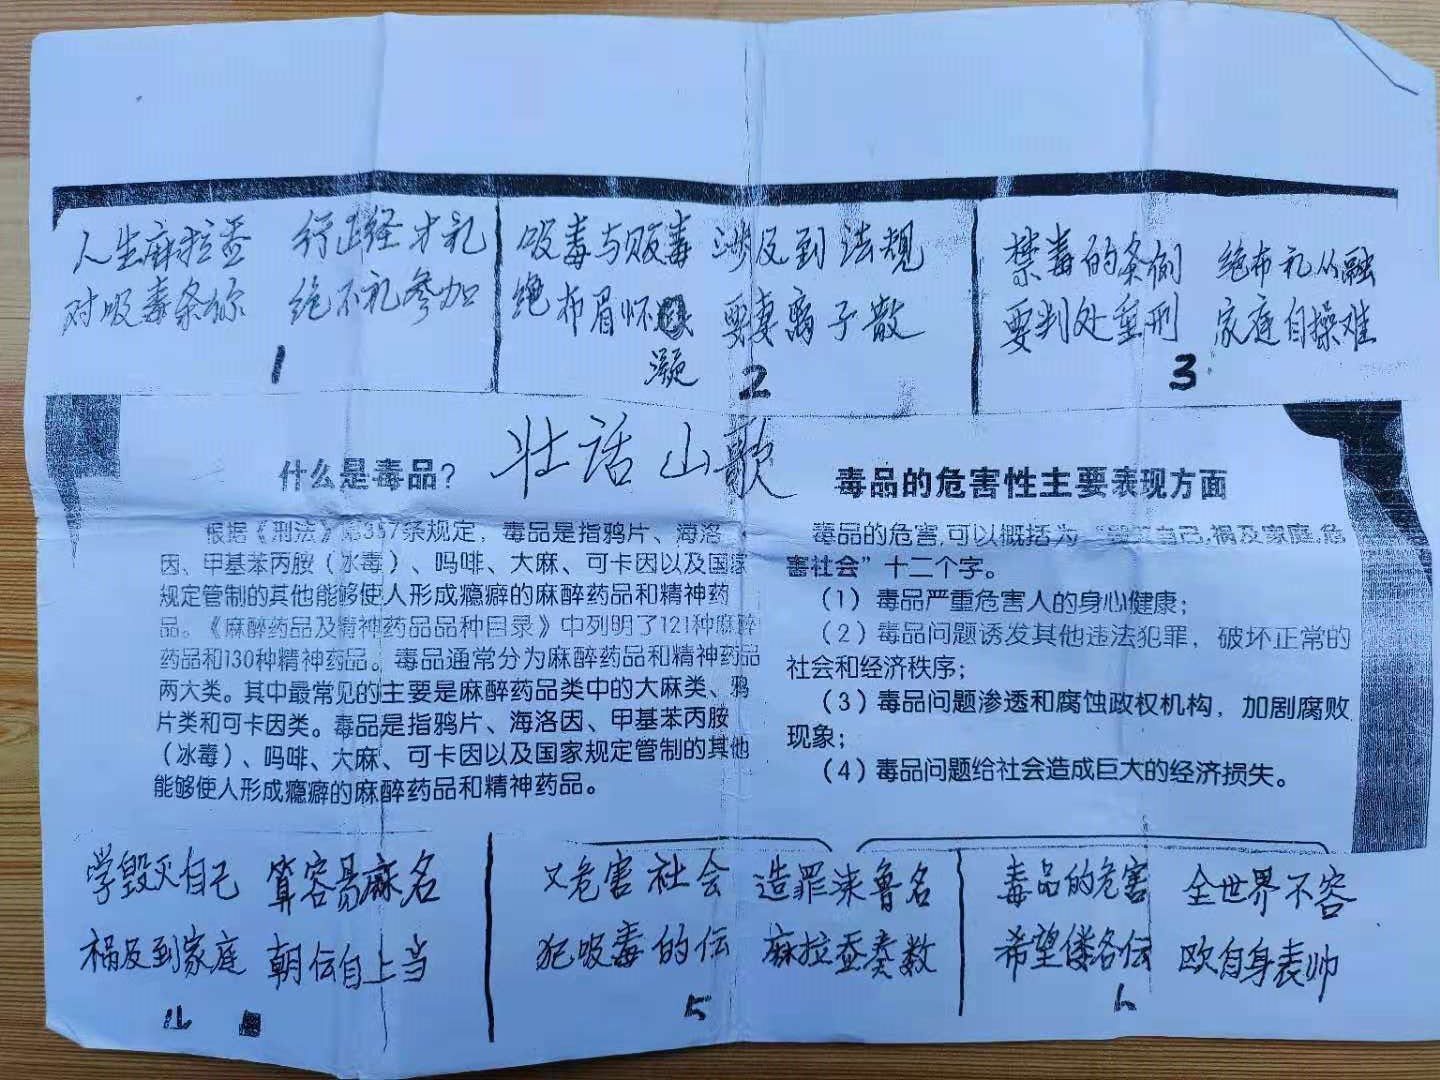 人生麻拉盃 行正经才礼
对吸毒条你 绝不礼参加
1
吸毒与贩毒 涉及到法规
绝布眉怀 要妻离子散
濒 2
禁毒的条例 绝布礼从融
要判处重刑 家庭自操难
3
壮话山歌
什么是毒品?
根据《刑法》第357条规定，毒品是指鸦片、海洛
因、甲基苯丙胺（冰毒）、吗啡、大麻、可卡因以及国家
规定管制的其他能够使人形成瘾癖的麻醉药品和精神药
品。《麻醉药品及精神药品品种目录》中列明了121种麻醉
药品和130种精神药品。毒品通常分为麻醉药品和精神药品
两大类。其中最常见的主要是麻醉药品类中的大麻类、鸦
片类和可卡因类。毒品是指鸦片、海洛因、甲基苯丙胺
（冰毒）、吗啡、大麻、可卡因以及国家规定管制的其他
能够使人形成瘾癖的麻醉药品和精神药品。
毒品的危害性主要表现方面
毒品的危害,可以概括为“毁灭自己,祸及家庭,危
害社会”十二个字。
（1）毒品严重危害人的身心健康；
（2）毒品问题诱发其他违法犯罪，破坏正常的
社会和经济秩序；
（3）毒品问题渗透和腐蚀政权机构，加剧腐败
现象；
（4）毒品问题给社会造成巨大的经济损失。
学毁灭自己 算容易麻名
祸及到家庭 朝伝自上当
4
又危害社会 造罪涞鲁名
犯吸毒的伝 麻拉蚕奏数
5
毒品的危害 全世界不容
希望偻各伝 欧自身表帅
6